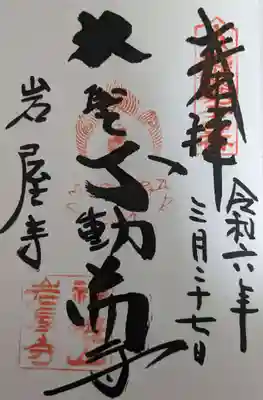 奉拝
令和六年
三月二十七日
大聖不動尊
岩屋寺